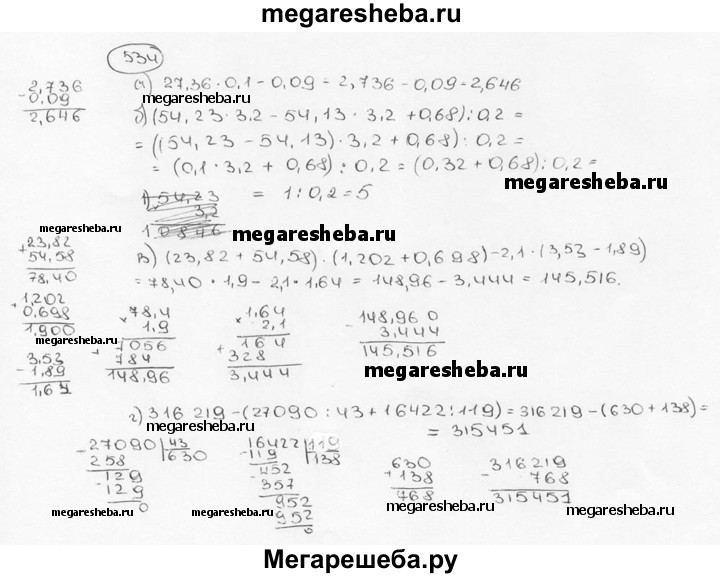 megaresheba.ru
534
2,736
-0,09
2,646
а) 27,36·0,1-0,09=2,736-0,09=2,646
megaresheba.ru
megaresheba.ru
б) (54,23·3,2-54,13·3,2+0,68):0,2=
=((54,23-54,13)·3,2+0,68):0,2=
=(0,1·3,2+0,68):0,2=(0,32+0,68):0,2=
megaresheba.ru
1) 54,23
3,2
10846
=1:0,2=5
megaresheba.ru
megaresheba.ru
+23,82
54,58
78,40
в) (23,82+54,58)·(1,202+0,698)-2,1·(3,53-1,89)
=78,40·1,9-2,1·1,64=148,96-3,444=145,516.
+1,202
0,698
1,900
megaresheba.ru
3,53
-1,89
1,64
×78,4
1,9
+7056
784
148,96
×1,64
2,1
+164
328
3,444
-148,960
3,444
145,516
megaresheba.ru
г) 316 219-(27090:43+16422:119)=316219-(630+138)=
=315451
megaresheba.ru
-27090|43
258 630
-129
129
0
-16422|119
119 138
-452
357
-952
952
0
630
+138
768
316219
-768
315451
megaresheba.ru
megaresheba.ru
megaresheba.ru
megaresheba.ru
Мегарешеба.ру